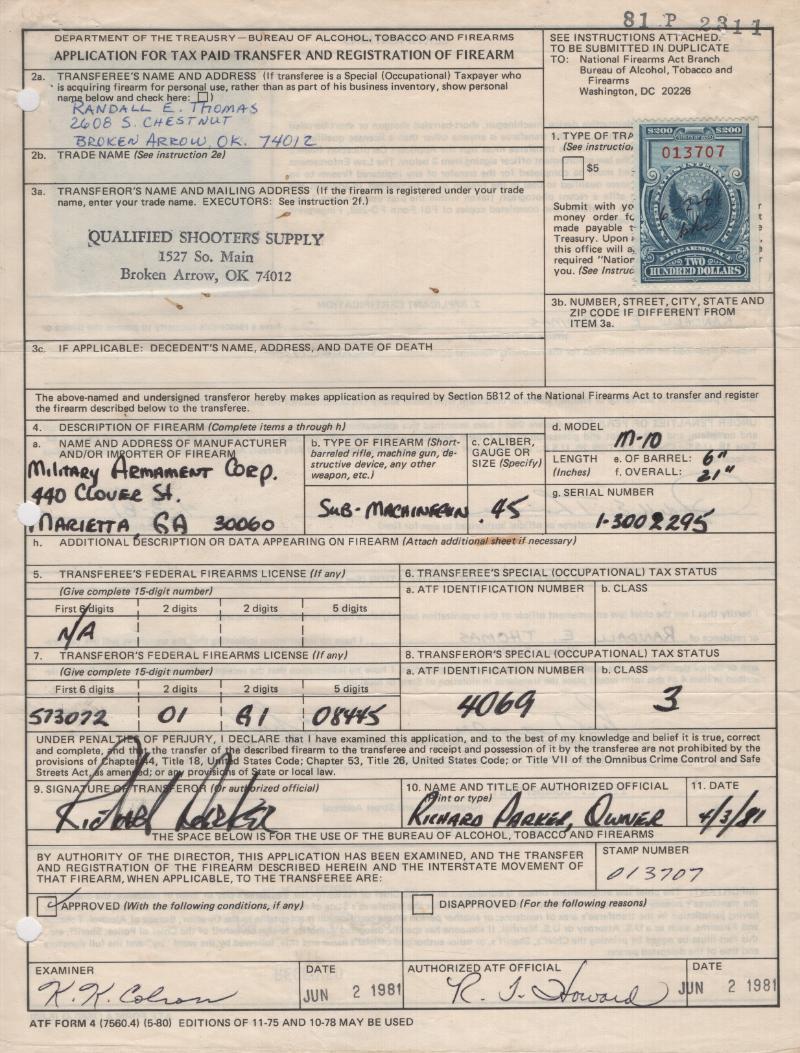 81 P 2311
DEPARTMENT OF THE TREAUSRY—BUREAU OF ALCOHOL, TOBACCO AND FIREARMS
APPLICATION FOR TAX PAID TRANSFER AND REGISTRATION OF FIREARM
SEE INSTRUCTIONS ATTACHED.
TO BE SUBMITTED IN DUPLICATE
TO: National Firearms Act Branch
Bureau of Alcohol, Tobacco and
Firearms
Washington, DC 20226
2a. TRANSFEREE'S NAME AND ADDRESS (If transferee is a Special (Occupational) Taxpayer who
is acquiring firearm for personal use, rather than as part of his business inventory, show personal
name below and check here: )
RANDALL E. THOMAS
2608 S. CHESTNUT
BROKEN ARROW, OK. 74012
2b. TRADE NAME (See instruction 2e)
1. TYPE OF TRA
(See instructio
$5
Submit with yo
money order fo
made payable t
Treasury. Upon
this office will a
required "Nation
you. (See Instruc
$200 $200
013707
FIREARMS ACT
TWO
HUNDRED DOLLARS
3a. TRANSFEROR'S NAME AND MAILING ADDRESS (If the firearm is registered under your trade
name, enter your trade name. EXECUTORS: See instruction 2f.)
QUALIFIED SHOOTERS SUPPLY
1527 So. Main
Broken Arrow, OK 74012
3b. NUMBER, STREET, CITY, STATE AND
ZIP CODE IF DIFFERENT FROM
ITEM 3a.
3c. IF APPLICABLE: DECEDENT'S NAME, ADDRESS, AND DATE OF DEATH
The above-named and undersigned transferor hereby makes application as required by Section 5812 of the National Firearms Act to transfer and register
the firearm described below to the transferee.
4. DESCRIPTION OF FIREARM (Complete items a through h)
a. NAME AND ADDRESS OF MANUFACTURER
AND/OR IMPORTER OF FIREARM
MILITARY ARMAMENT CORP.
440 CLOVER ST.
MARIETTA, GA 30060
b. TYPE OF FIREARM (Short-
barreled rifle, machine gun, de-
structive device, any other
weapon, etc.)
SUB-MACHINEGUN
c. CALIBER,
GAUGE OR
SIZE (Specify)
.45
d. MODEL
M-10
LENGTH (Inches)
e. OF BARREL: 6"
f. OVERALL: 21"
g. SERIAL NUMBER
1-3002295
h. ADDITIONAL DESCRIPTION OR DATA APPEARING ON FIREARM (Attach additional sheet if necessary)
5. TRANSFEREE'S FEDERAL FIREARMS LICENSE (If any)
(Give complete 15-digit number)
First 6 digits 2 digits 2 digits 5 digits
N/A
6. TRANSFEREE'S SPECIAL (OCCUPATIONAL) TAX STATUS
a. ATF IDENTIFICATION NUMBER b. CLASS
7. TRANSFEROR'S FEDERAL FIREARMS LICENSE (If any)
(Give complete 15-digit number)
First 6 digits 2 digits 2 digits 5 digits
573072 01 G1 08445
8. TRANSFEROR'S SPECIAL (OCCUPATIONAL) TAX STATUS
a. ATF IDENTIFICATION NUMBER b. CLASS
4069 3
UNDER PENALTIES OF PERJURY, I DECLARE that I have examined this application, and to the best of my knowledge and belief it is true, correct
and complete, and that the transfer of the described firearm to the transferee and receipt and possession of it by the transferee are not prohibited by the
provisions of Chapter 44, Title 18, United States Code; Chapter 53, Title 26, United States Code; or Title VII of the Omnibus Crime Control and Safe
Streets Act, as amended; or any provisions of State or local law.
9. SIGNATURE OF TRANSFEROR (Or authorized official)
Richard Parker
10. NAME AND TITLE OF AUTHORIZED OFFICIAL
(Print or type)
RICHARD PARKER, OWNER
11. DATE
4/3/81
THE SPACE BELOW IS FOR THE USE OF THE BUREAU OF ALCOHOL, TOBACCO AND FIREARMS
BY AUTHORITY OF THE DIRECTOR, THIS APPLICATION HAS BEEN EXAMINED, AND THE TRANSFER
AND REGISTRATION OF THE FIREARM DESCRIBED HEREIN AND THE INTERSTATE MOVEMENT OF
THAT FIREARM, WHEN APPLICABLE, TO THE TRANSFEREE ARE:
STAMP NUMBER
013707
APPROVED (With the following conditions, if any)
DISAPPROVED (For the following reasons)
EXAMINER
K. K. Colson
DATE
JUN 2 1981
AUTHORIZED ATF OFFICIAL
R. T. Howard
DATE
JUN 2 1981
ATF FORM 4 (7560.4) (5-80) EDITIONS OF 11-75 AND 10-78 MAY BE USED